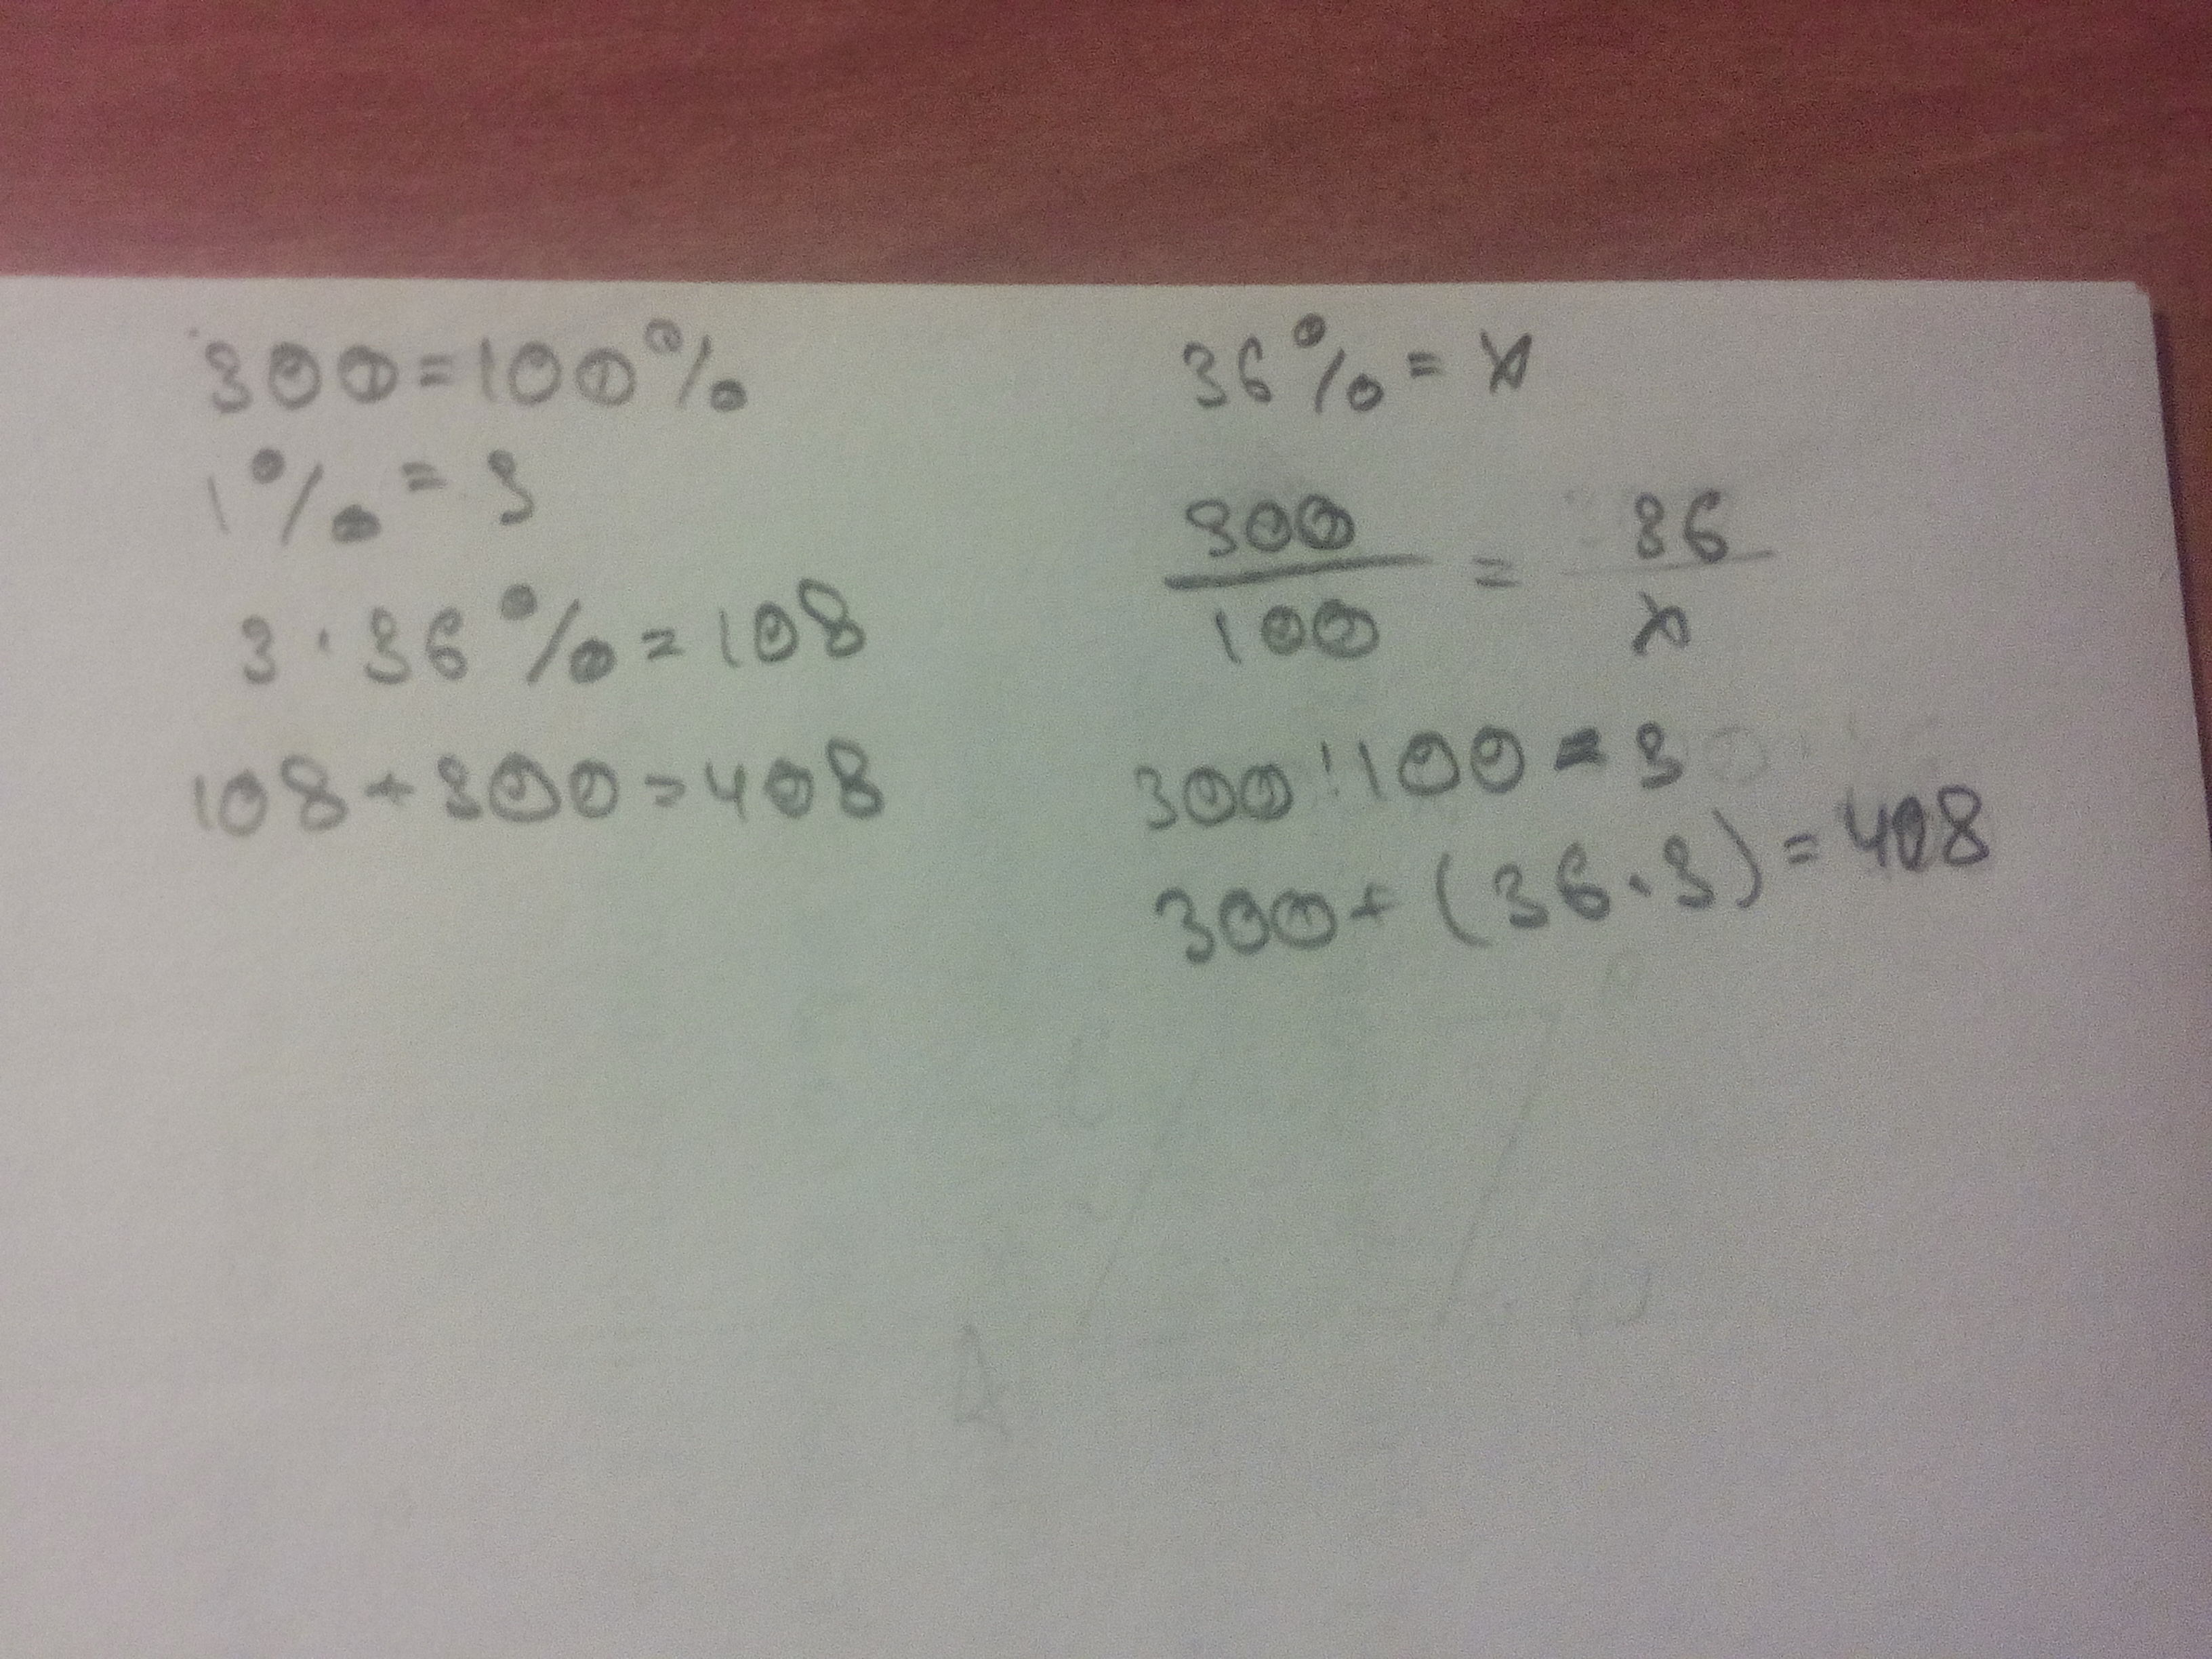 300=100%
1%=3
3·36%=108
108+300=408
36%=x
300/100 = 36/x
300:100=3
300+(36·3)=408